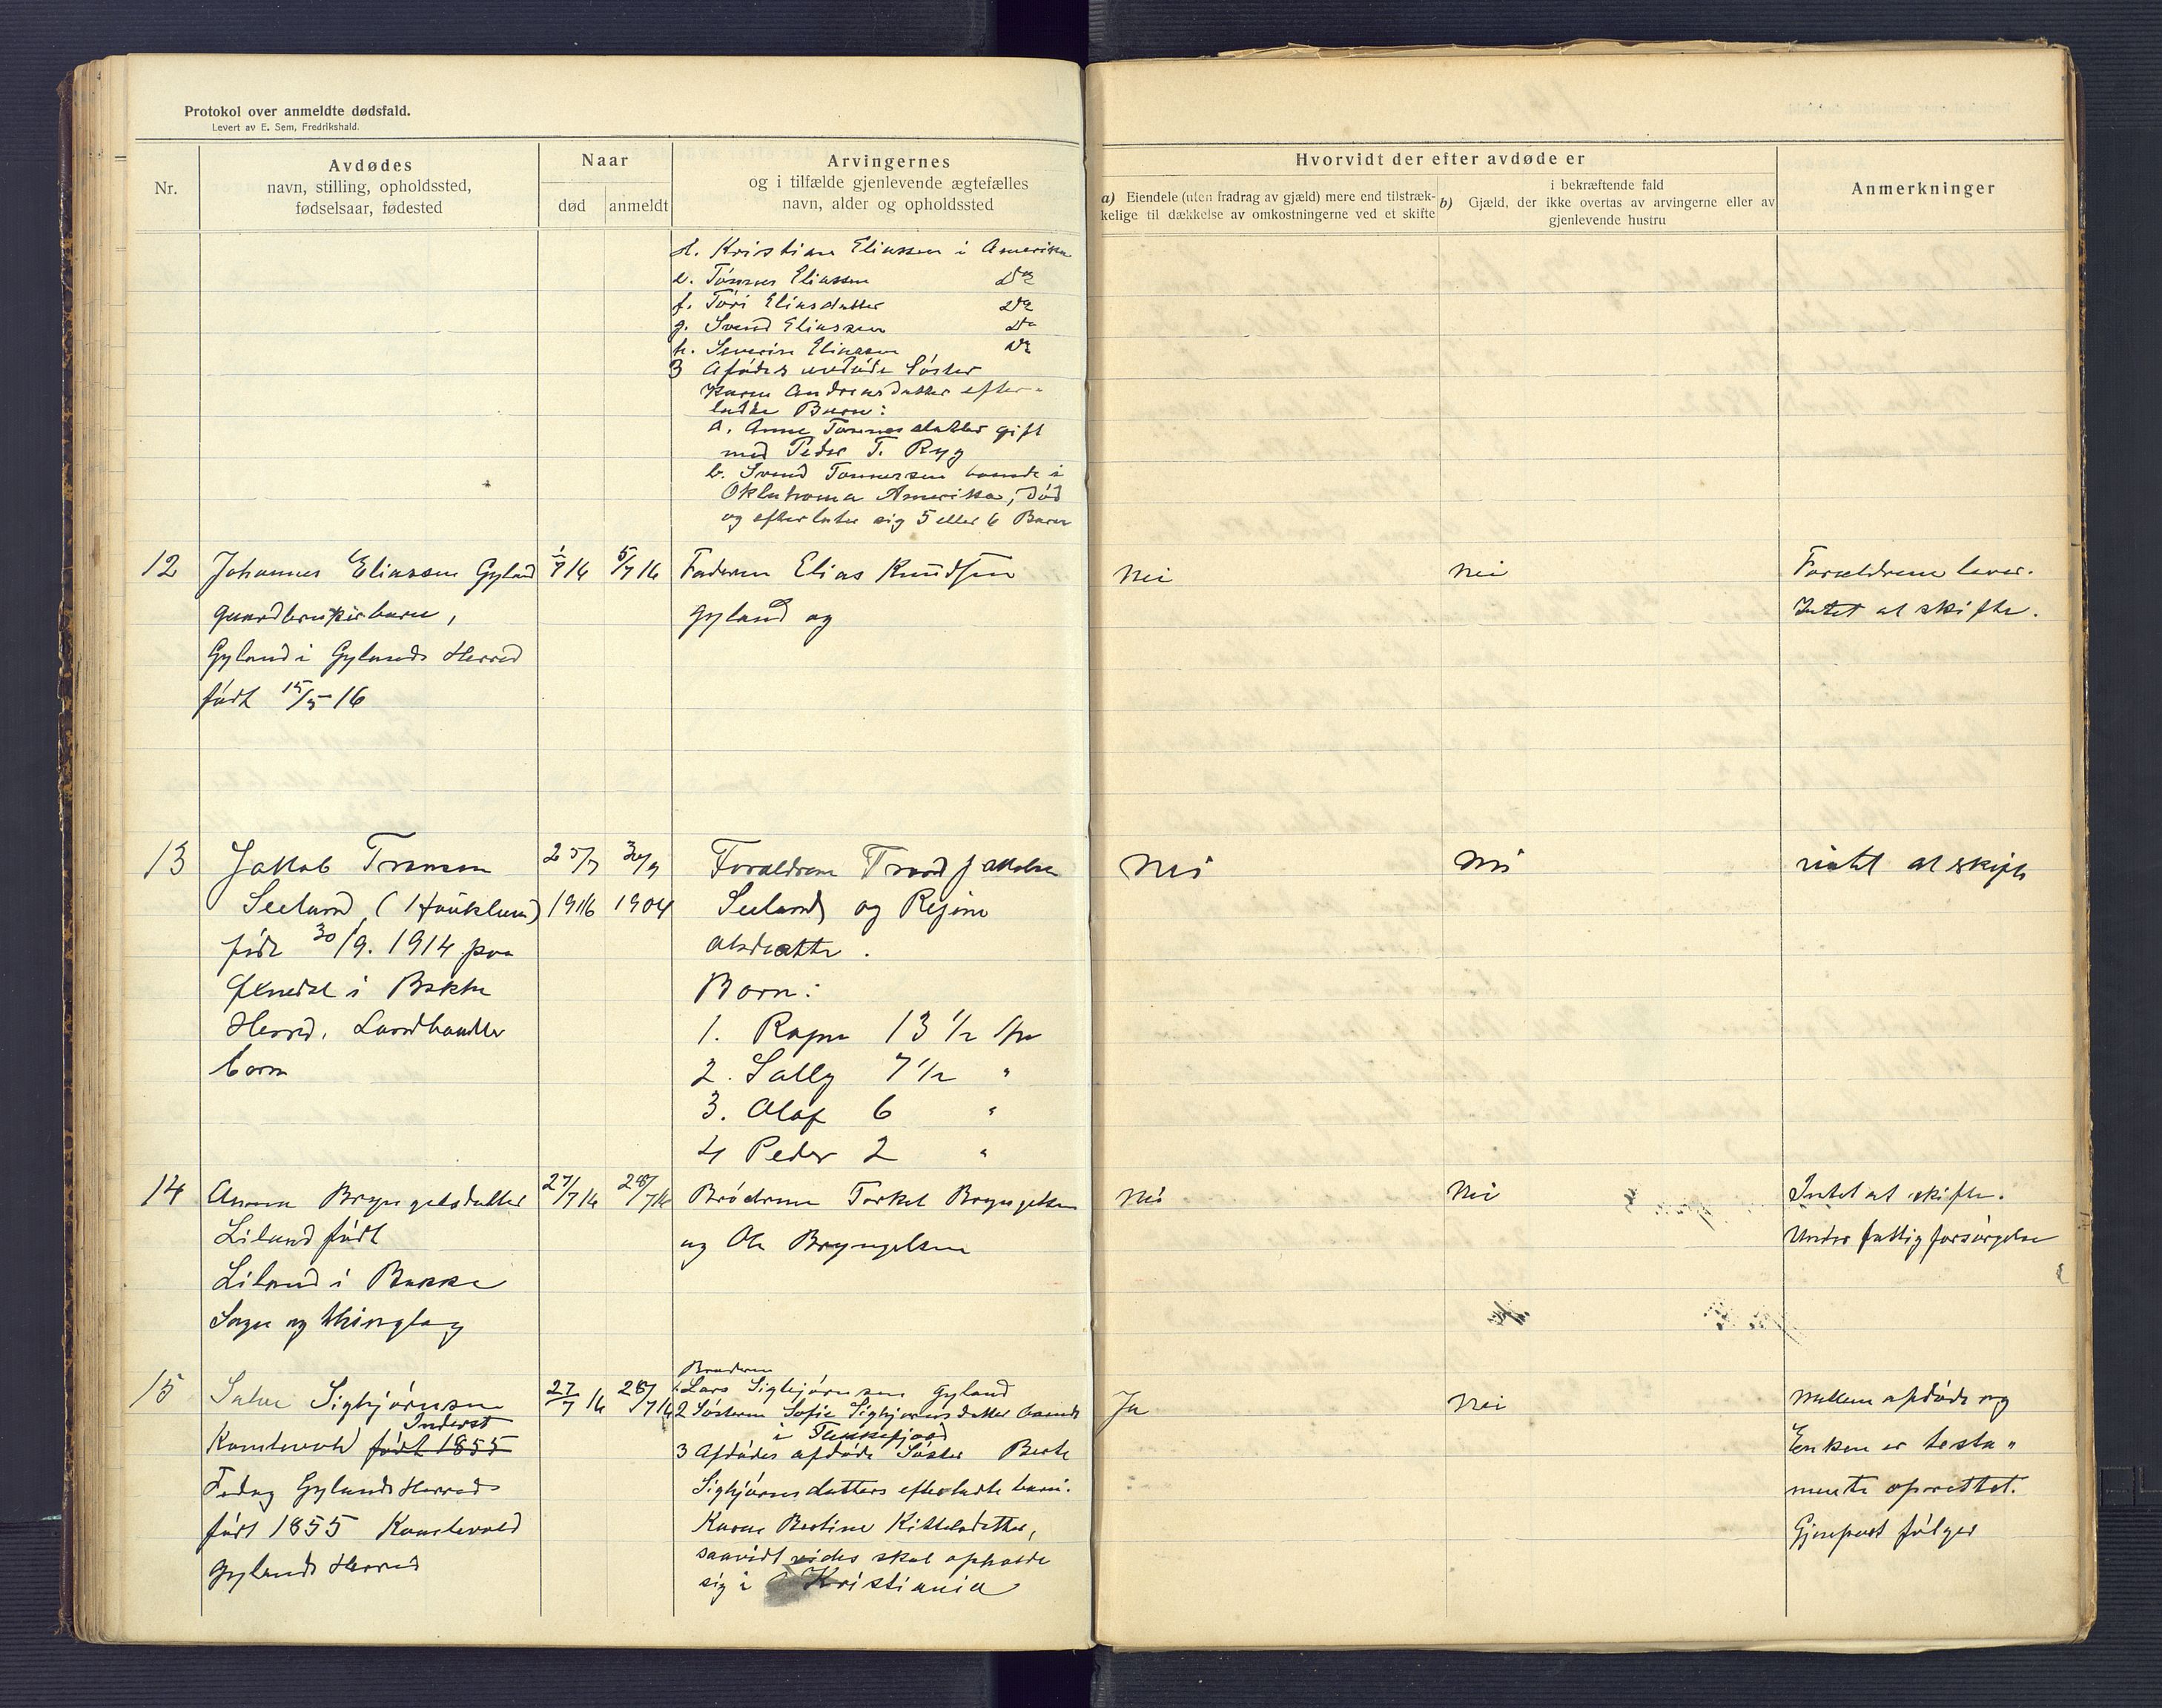 Protokol over anmeldte dødsfald.
Levert av E. Sem, Fredrikshald.
Nr.
Avdødes
navn, stilling, opholdssted,
fødselsaar, fødested
Naar
død
anmeldt
Arvingernes
og i tilfælde gjenlevende ægtefælles
navn, alder og opholdssted
Hvorvidt der efter avdøde er
a) Eiendele (uten fradrag av gjæld) mere end tilstræk-
kelige til dækkelse av omkostningerne ved et skifte
i bekræftende fald
b) Gjæld, der ikke overtas av arvingerne eller av
gjenlevende hustru
Anmerkninger
d. Kristian Eliassen i Amerika
e. Tønnes Eliassen Do
f. Tori Eliasdatter Do
g. Svend Eliassen Do
h. Severin Eliassen Do
3 Afdødes avdøde Søster
Karen Andreasdatter efter-
ladte Barn:
a. Anne Tønnesdatter gift
med Peder T. Ryg
b. Svend Tønnessen boende i
Oklahoma Amerika, død
og efterlater sig 5 eller 6 Barn
12
Johannes Eliassen Gyland
gaardbrukerbarn,
Gyland i Gylands Herred
født 15/5-16
1/7 16
5/7 16
Faderen Elias Knudsen
Gyland og
Nei
Nei
Forældrene lever.
Intet at skifte.
13
Jakob Tronsen
Seeland (Haüklum)
født 30/9. 1914 paa
Øxnedal i Bakke
Herred. Landhandler
barn
25/7
1916
30/9
1904
Forældrene Trond Jakobsen
Seeland og Regine
Olsdatter.
Børn:
1. Ragna 13 1/2 Aar
2. Sally 7 1/2 "
3. Olaf 6 "
4 Peder 2 "
Nei
Nei
intet at skifte
14
Anna Bryngelsdatter
Liland født
Liland i Bakke
Sogn og thinglag
27/7 16
28/7 16
Brødrene Torkel Bryngelsen
og Ole Bryngelsen
Nei
Nei
Intet at skifte.
Under fattigforsørgelse
15
Salve Sigbjørnsen
Inderst
Kamlevold født 1855
Fedog Gylands Herred
født 1855 Kamlevold
Gylands Herred
27/7 16
28/7 16
Broderen
1. Lars Sigbjørnsen Gyland
2 Søsteren Sofie Sigbjørnsdatter boende
i Flekkefjord
3 Afdødes afdøde Søster Berte
Sigbjørnsdatters efterladte barn:
Karen Bertine Kittelsdatter,
saavidt vides skal opholde
sig i Kristiania
Ja
Nei
Mellem afdøde og
Enken er testa"
mente oprettet.
Gjenpart følger